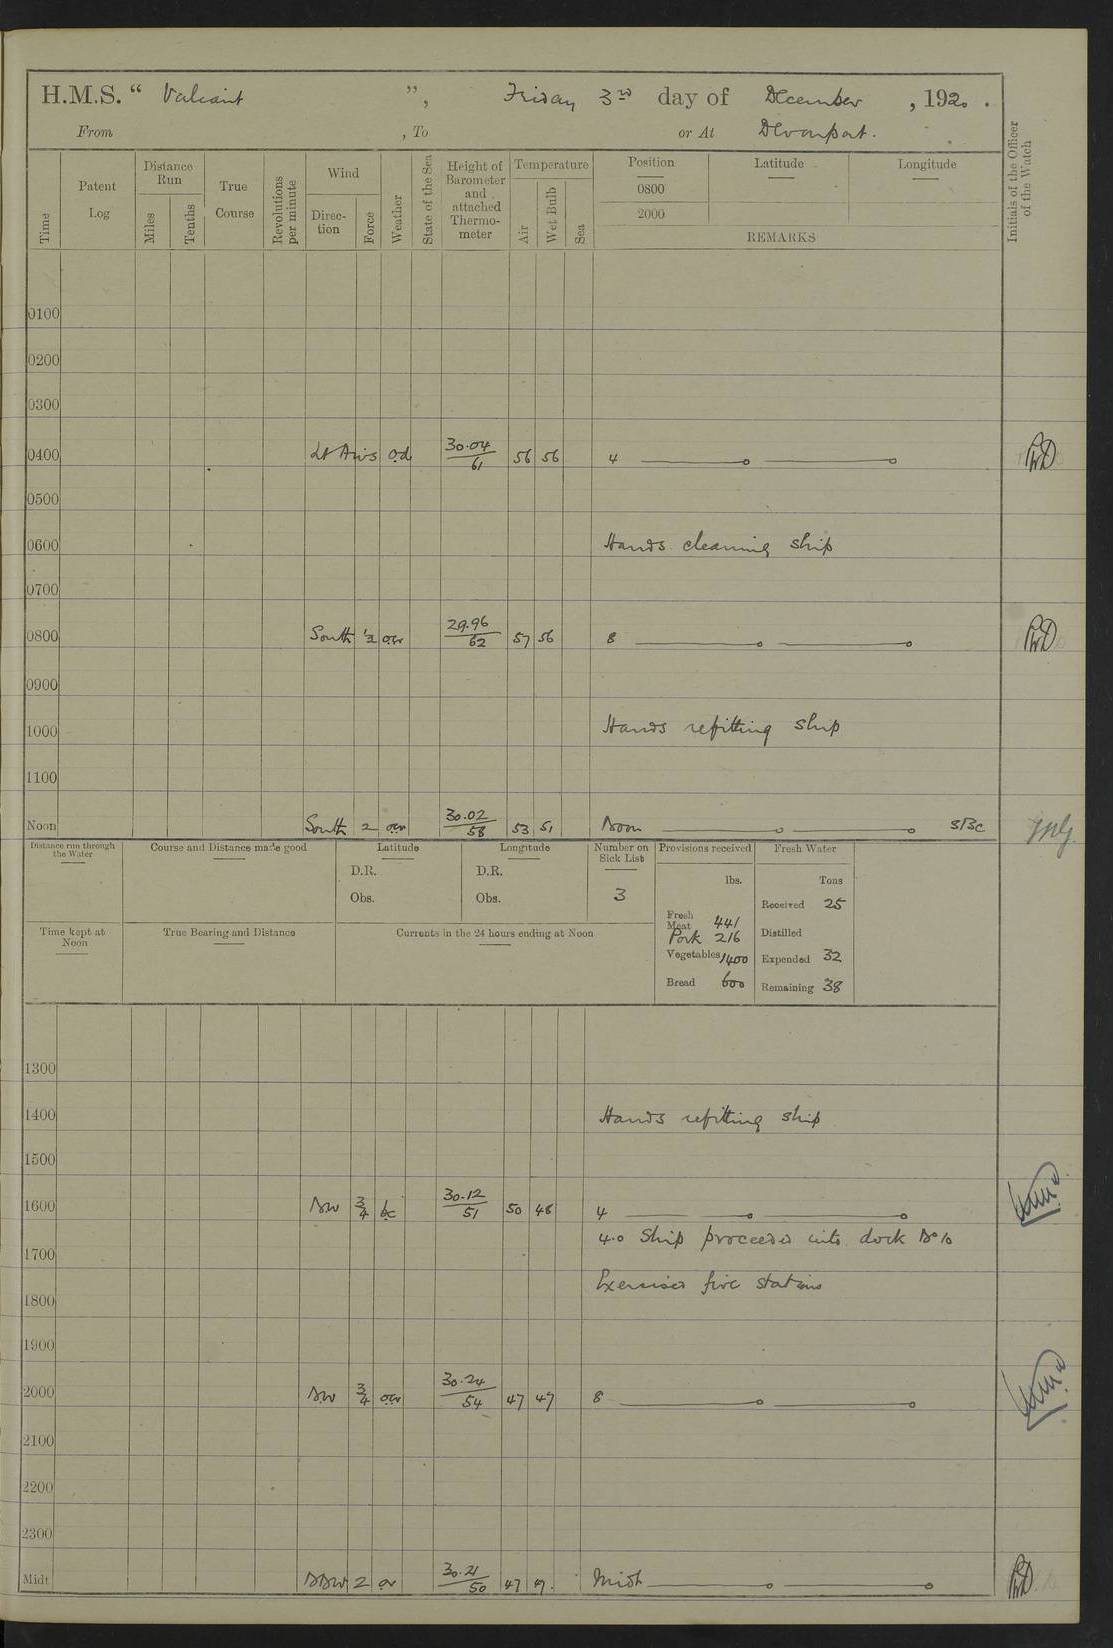 H.M.S. “ Valiant ”, Friday 3rd day of December , 1920.
From , To or At Devonport.
Time Patent Log Distance Run Miles Tenths True Course Revolutions per minute Wind Direc-tion Force Weather State of the Sea Height of Barometer and attached Thermo-meter Temperature Air Wet Bulb Sea Position 0800 2000 Latitude Longitude REMARKS Initials of the Officer of the Watch
0100
0200
0300
0400 Lt Airs od 30.04/61 56 56 4
0500
0600 Hands cleaning ship
0700
0800 South ½ 29.96/62 57 56 8
0900
1000 Hands refitting ship
1100
Noon South 2 30.02/58 53 51 Noon SBC
Distance run through the Water Course and Distance made good Latitude Longitude Number on Sick List Provisions received Fresh Water
D.R. D.R. lbs. Tons
Obs. Obs. 3 Received 25
Fresh Meat 441
Pork 216 Distilled
Time kept at Noon True Bearing and Distance Currents in the 24 hours ending at Noon
Vegetables 1400 Expended 32
Bread 600 Remaining 38
1300
1400 Hands refitting ship
1500
1600 NW 3/4 bc 30.12/51 50 48 4
4.0 Ship proceeded into dock No 10
1700
Exercised fire stations
1800
1900
2000 NW 3/4 30.24/54 47 47 8
2100
2200
2300
Midt NNW 2 30.21/50 47 47. Midt